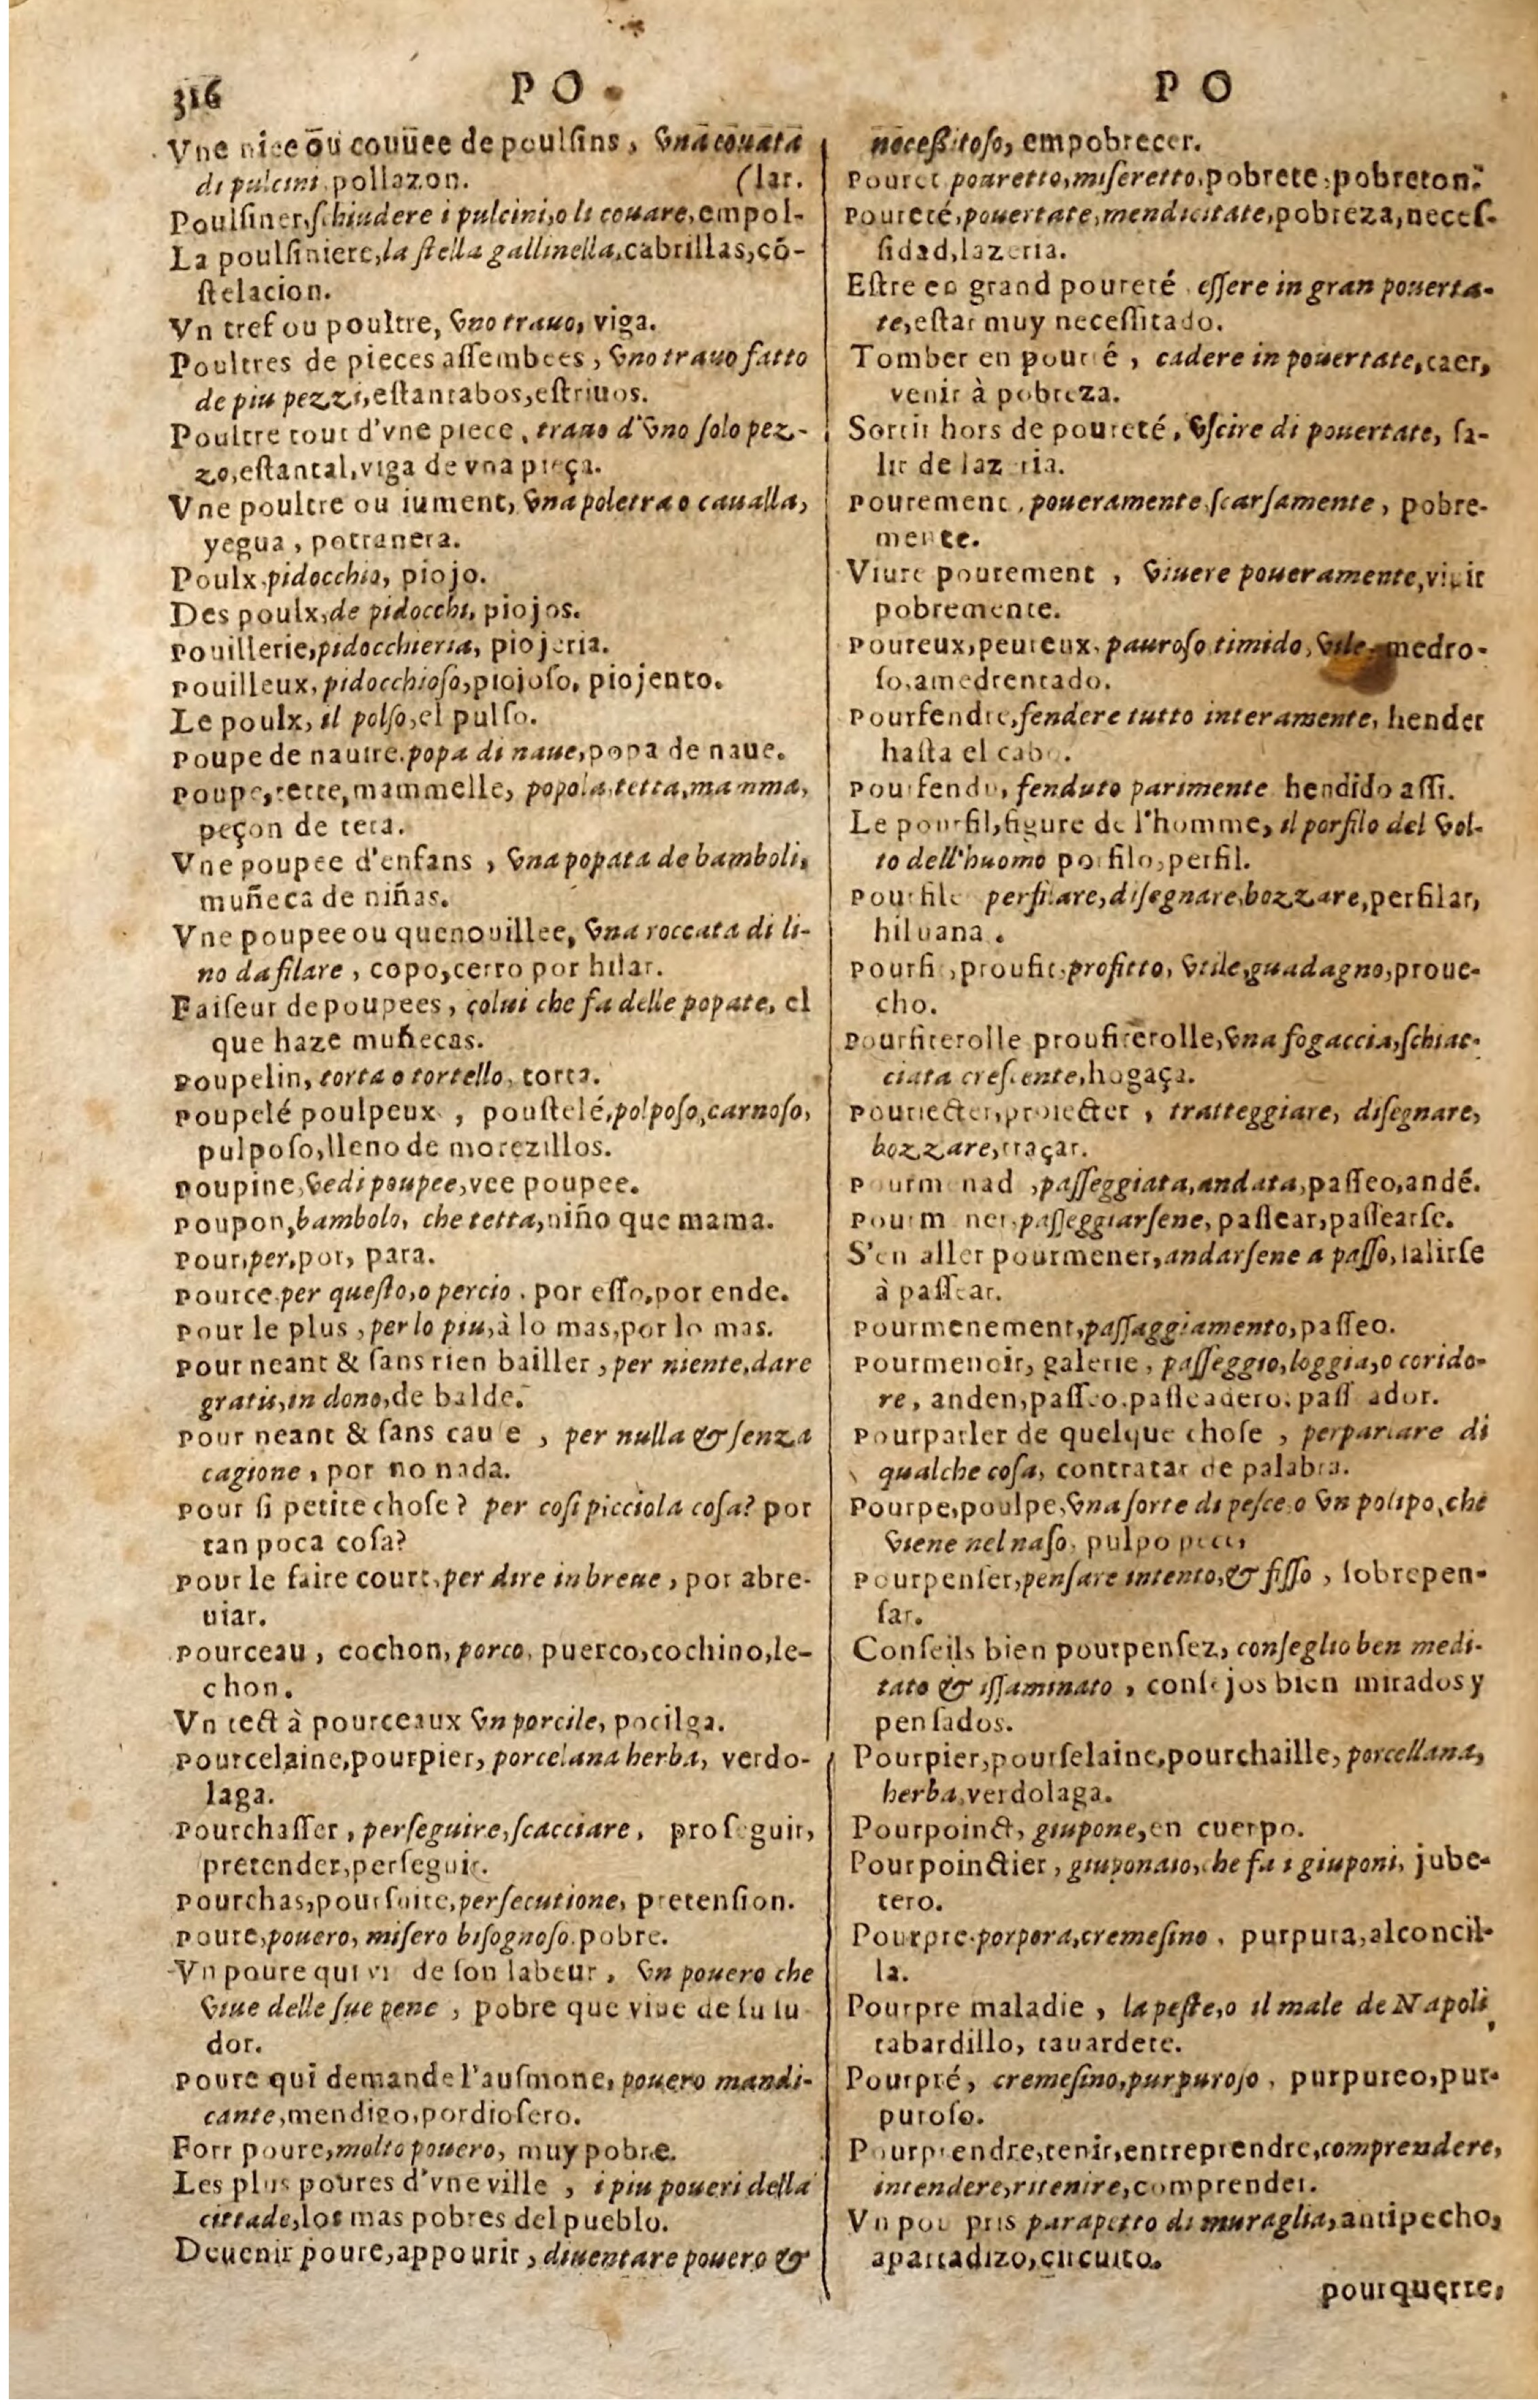 316
P O
P O
Vne nice ou couuee de poulſins, vna couata
di pulcini, pollazon. (lar.
Poulſiner, ſchiudere i pulcini, o li couare, empol-
La poulſiniere, la ſtella gallinella, cabrillas, cō-
ſtelacion.
Vn tref ou poultre, vno trauo, viga.
Poultres de pieces aſſembees, vno trauo fatto
de piu pezzi, eſtantabos, eſtriuos.
Poultre tout d'vne piece, trauo d'vno ſolo pez-
zo, eſtantal, viga de vna pieça.
Vne poultre ou iument, vna poletra o caualla,
yegua, potranera.
Poulx, pidocchio, piojo.
Des poulx, de pidocchi, piojos.
Pouillerie, pidocchieria, piojeria.
Pouilleux, pidocchioſo, piojoſo, piojento.
Le poulx, il polſo, el pulſo.
Poupe de nauire, popa di naue, popa de naue.
Poupe, tette, mammelle, popola, tetta, mamma,
peçon de teta.
Vne poupee d'enfans, vna popata de bamboli,
muñeca de niñas.
Vne poupee ou quenouillee, vna roccata di li-
no da filare, copo, cerro por hilar.
Faiſeur de poupees, colui che fa delle popate, el
que haze muñecas.
Poupelin, torta o tortello, torta.
Poupelé poulpeux, pouſtelé, polpoſo, carnoſo,
pulpoſo, lleno de morezillos.
Poupine, vedi poupee, vee poupee.
Poupon, bambolo, che tetta, niño que mama.
Pour, per, por, para.
Pource, per queſto, o percio, por eſſo, por ende.
Pour le plus, per lo piu, à lo mas, por lo mas.
Pour neant & ſans rien bailler, per niente, dare
gratis, in dono, de balde.
Pour neant & ſans cauſe, per nulla & ſenza
cagione, por no nada.
Pour ſi petite choſe? per coſi picciola coſa? por
tan poca coſa?
Pour le faire court, per dire in breue, por abre-
uiar.
Pourceau, cochon, porco, puerco, cochino, le-
chon.
Vn tect à pourceaux vn porcile, pocilga.
Pourcelaine, pourpier, porcelana herba, verdo-
laga.
Pourchaſſer, perſeguire, ſcacciare, proſeguir,
pretender, perſeguir.
Pourchas, pourſuite, perſecutione, pretenſion.
Poure, pouero, miſero biſognoſo, pobre.
Vn poure qui vi de ſon labeur, vn pouero che
viue delle ſue pene, pobre que viue de ſu ſu
dor.
Poure qui demande l'auſmone, pouero mandi-
cante, mendigo, pordioſero.
Fort poure, molto pouero, muy pobre.
Les plus poures d'vne ville, i piu poueri della
cittade, los mas pobres del pueblo.
Deuenir poure, appourir, diuentare pouero &
neceſſitoſo, empobrecer.
Pouret pouretto, miſeretto, pobrete, pobreton.
Poureté, pouertate, mendicitate, pobreza, neceſ-
ſidad, lazeria.
Eſtre en grand poureté, eſſere in gran pouerta-
te, eſtar muy neceſſitado.
Tomber en poureté, cadere in pouertate, caer,
venir à pobreza.
Sortir hors de poureté, vſcire di pouertate, ſa-
lir de lazeria.
Pourement, poueramente, ſcarſamente, pobre-
mente.
Viure pourement, viuere poueramente, viuir
pobremente.
Poureux, peureux, pauroſo, timido, vile, medro-
ſo, amedrentado.
Pourfendre, fendere tutto interamente, hender
haſta el cabo.
Pourfendu, fenduto parimente hendido aſſi.
Le pourfil, figure de l'homme, il porfilo del vol-
to dell'huomo porfilo, perfil.
Pourfile perfilare, diſegnare, bozzare, perfilar,
hiluana.
Pourfit, proufit, profitto, vtile, guadagno, proue-
cho.
Pourfiterolle proufiterolle, vna fogaccia, ſchiac-
ciata creſcente, hogaça.
Pouriecter, proiecter, tratteggiare, diſegnare,
bozzare, traçar.
Pourmenad, paſſeggiata, andata, paſſeo, andé.
Pourmener, paſſeggiarſene, paſſear, paſſearſe.
S'en aller pourmener, andarſene a paſſo, ſalirſe
à paſſear.
Pourmenement, paſſaggiamento, paſſeo.
Pourmenoir, galerie, paſſeggio, loggia, o corido-
re, anden, paſſeo, paſſeadero, paſſeador.
Pourparler de quelque choſe, perparlare di
qualche coſa, contratar de palabra.
Pourpe, poulpe, vna ſorte di peſce o vn polipo, che
viene nel naſo, pulpo pece,
Pourpenſer, penſare intento, & fiſſo, ſobrepen-
ſar.
Conſeils bien pourpenſez, conſeglio ben medi-
tato & iſſaminato, conſejos bien mirados y
penſados.
Pourpier, pourſelaine, pourchaille, porcellana,
herba, verdolaga.
Pourpoinct, giupone, en cuerpo.
Pourpoinctier, giuponaio, che fa i giuponi, jube-
tero.
Pourpre, porpora, cremeſino, purpura, alconcil-
la.
Pourpre maladie, la peſte, o il male de Napoli,
tabardillo, tauardete.
Pourpré, cremeſino, purpuroſo, purpureo, pur-
puroſo.
Pourprendre, tenir, entreprendre, comprendere,
intendere, ritenire, comprender.
Vn pourpris parapetto di muraglia, antipecho,
apartadizo, circuito.
pourquerre,